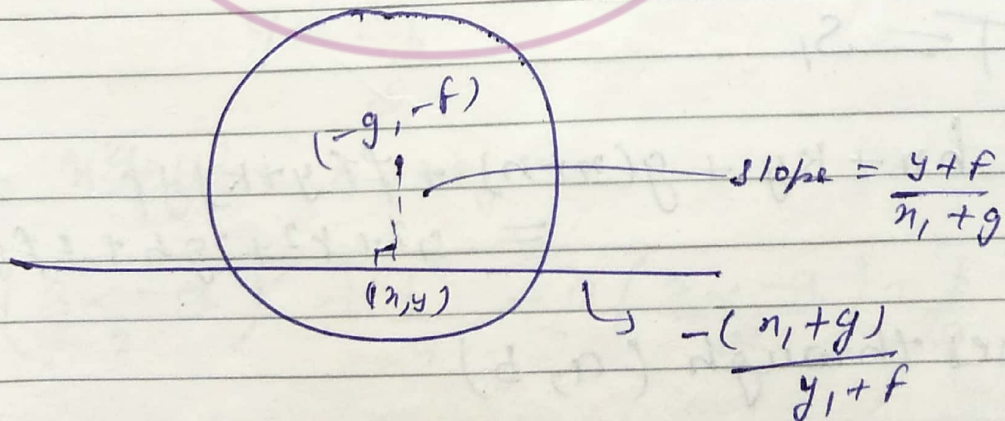 T = S₁
(-g, -f)
slope = y+f / x₁+g
(x,y)
-(x₁+g) / y₁+f
(a, b)